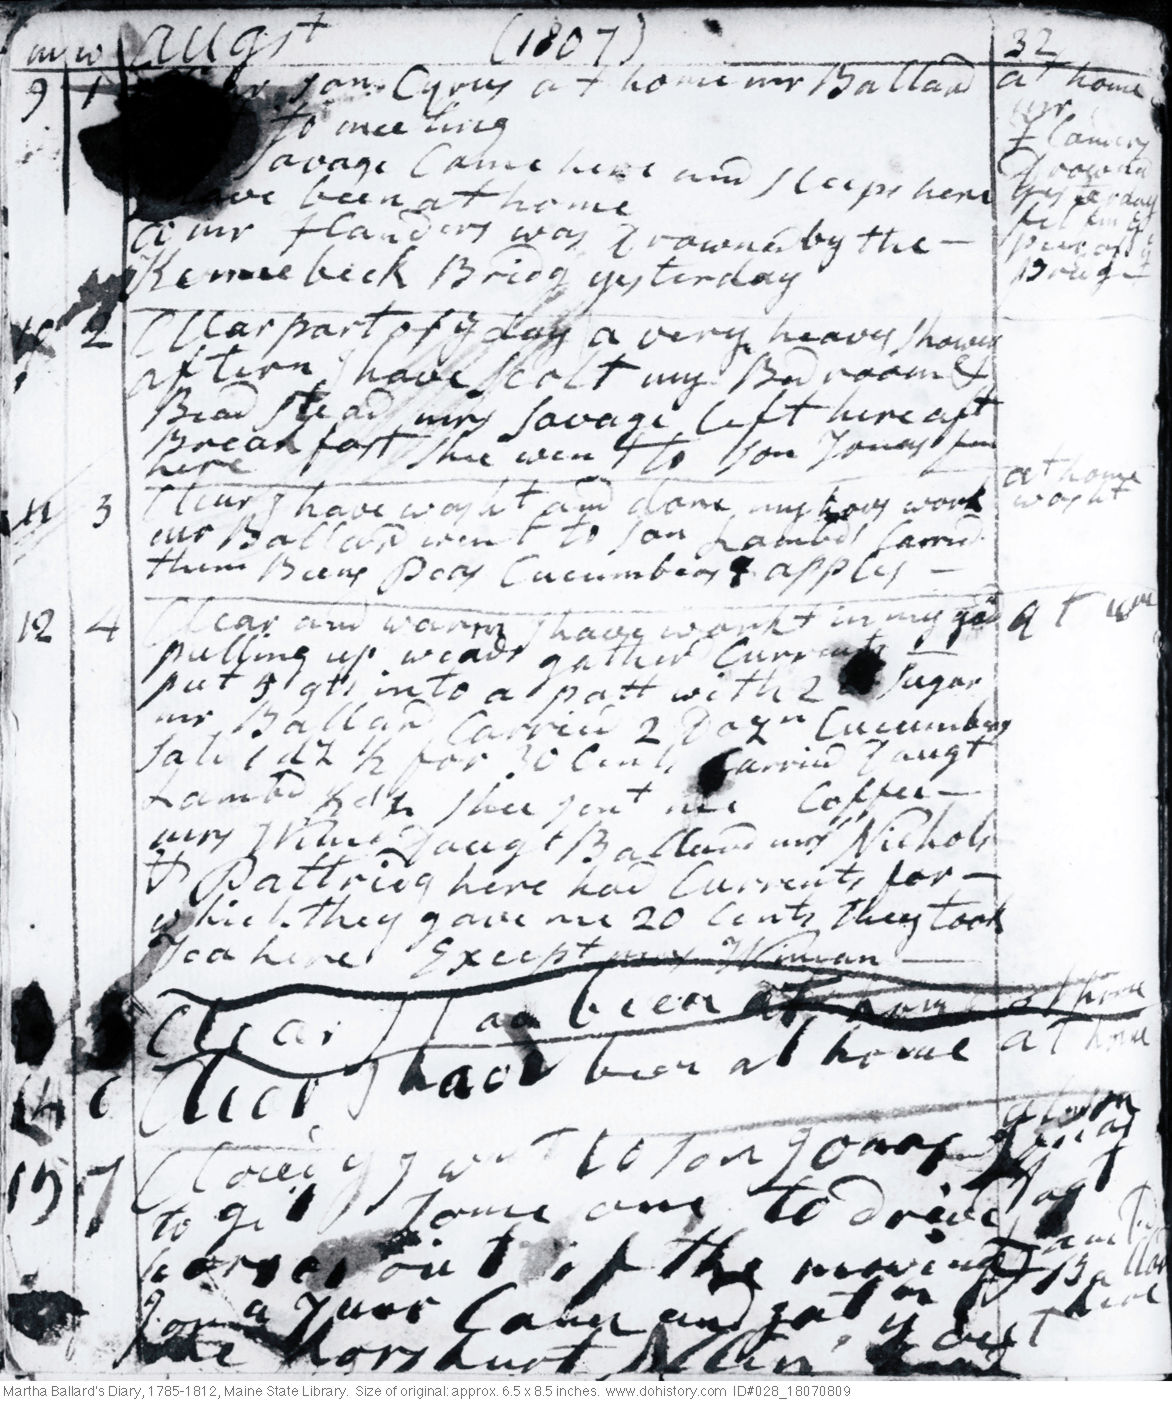 m w Augst (1807) 32
9 1 son Cyrus at home mr Ballard at home
to meeting mr
Savage Came here and sleeps here Flanders
have been at home Drownd
a mr Flanders was Drowned by the – yesterday
Kennebeck Bridg yesterday Bridg
10 2 Clear part of ye day a very heavy shower
aftern I have scolt my Bedroom &
Bead stead mrs Savage left here aft
Breakfast shee went to son Jonas fm
here
11 3 Clear I have washt and done my hous work at home
mr Ballard went to son Lambds Carrid washt
them Beens Peas Cucumbers & apples –
12 4 Clear and warm I have workt in my gdn at hom
pulling up weads gatherd Currents –
put 5 qts into a pott with 2 sugar
mr Ballard Carried 2 Dozn Cucumbers
sold 1 dz ½ for 30 Cents Carried Daugt
Lambd shee sent me Coffee –
mrs Daugt Ballard mrs Nichols
& Pattridg here had Currents for –
which they gave me 20 Cents they took
Tea here Except mrs Wiman –
Clear I have been at home at home
14 6 Clear I have been at home at home
15 7 Clowdy I went to son Jonas at son
to git some one to drive
horses out of the mowing Ballard
Jona Junr Came and got ym out here
one hors hurt
Martha Ballard's Diary, 1785-1812, Maine State Library. Size of original: approx. 6.5 x 8.5 inches. www.dohistory.com ID#028_18070809